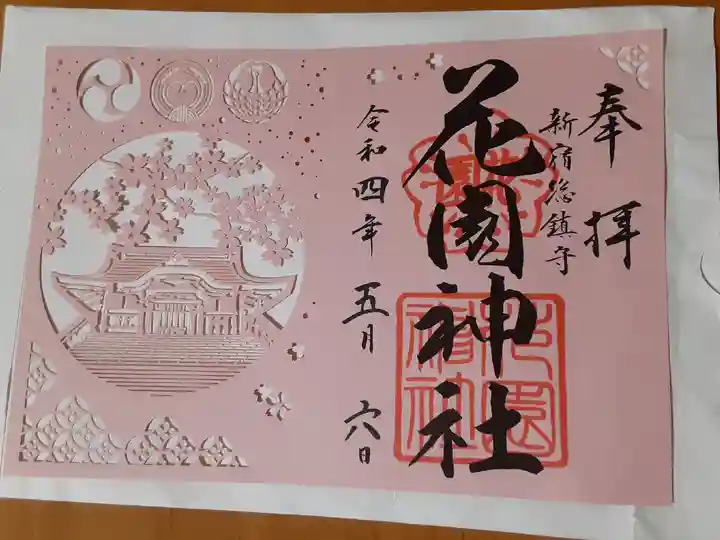 奉拝
新宿総鎮守
花園神社
令和四年 五月 六日
花園
神社